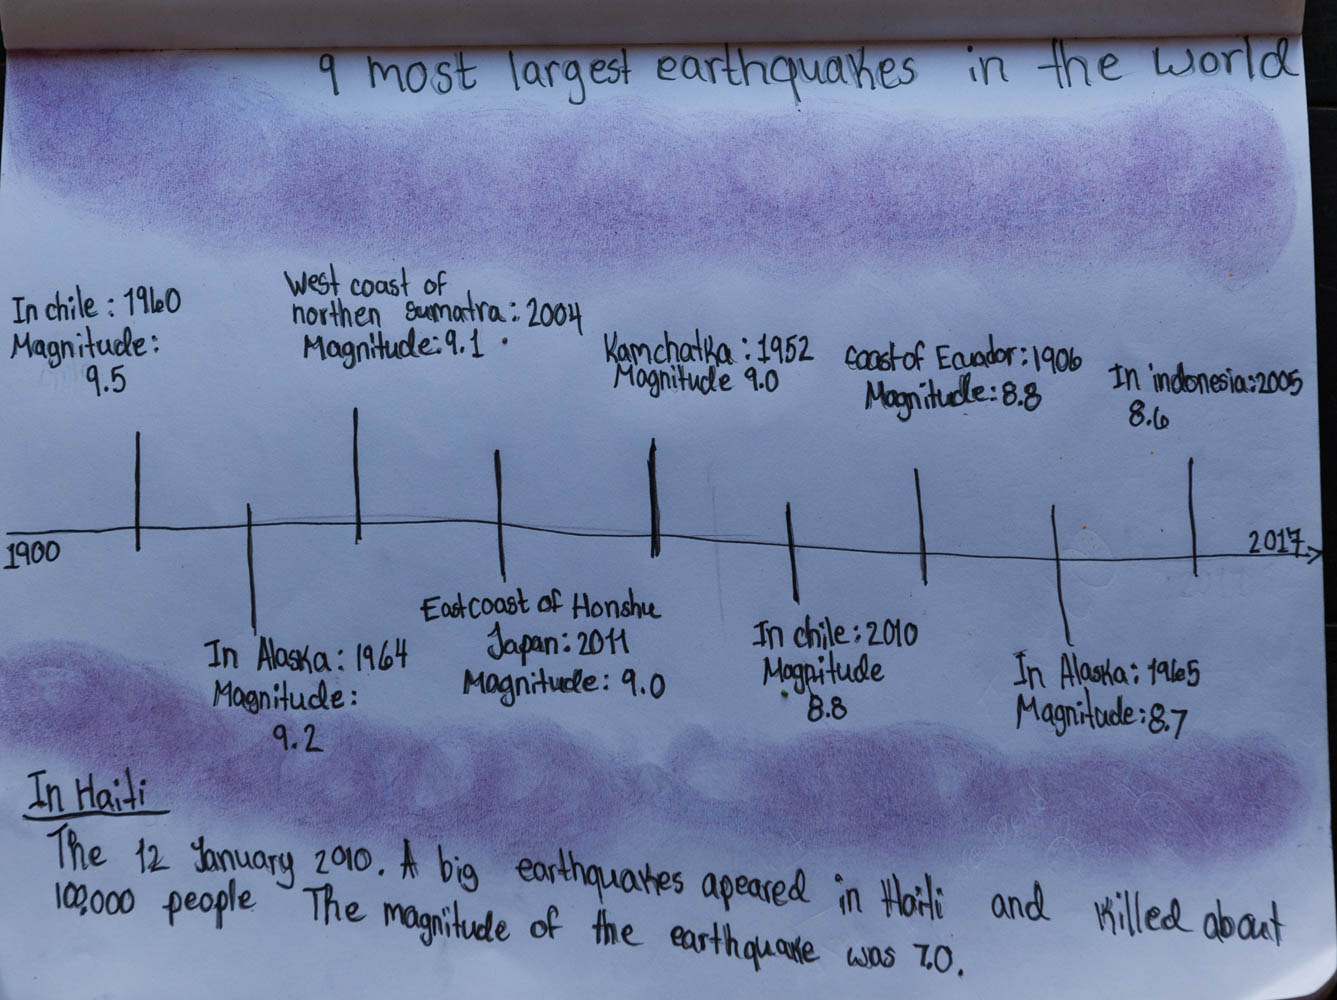 9 most largest earthquakes in the world
In chile : 1960
Magnitude:
9.5
West coast of
northen sumatra: 2004
Magnitude: 9.1
Kamchatka : 1952
Magnitude 9.0
coast of Ecuador: 1906
Magnitude: 8.8
In indonesia: 2005
8.6
1900
2017
In Alaska: 1964
Magnitude:
9.2
East coast of Honshu
Japan: 2011
Magnitude: 9.0
In chile: 2010
Magnitude
8.8
In Alaska: 1965
Magnitude: 8.7
In Haiti
The 12 January 2010. A big earthquakes apeared in Haiti and killed about
100,000 people The magnitude of the earthquake was 7.0.